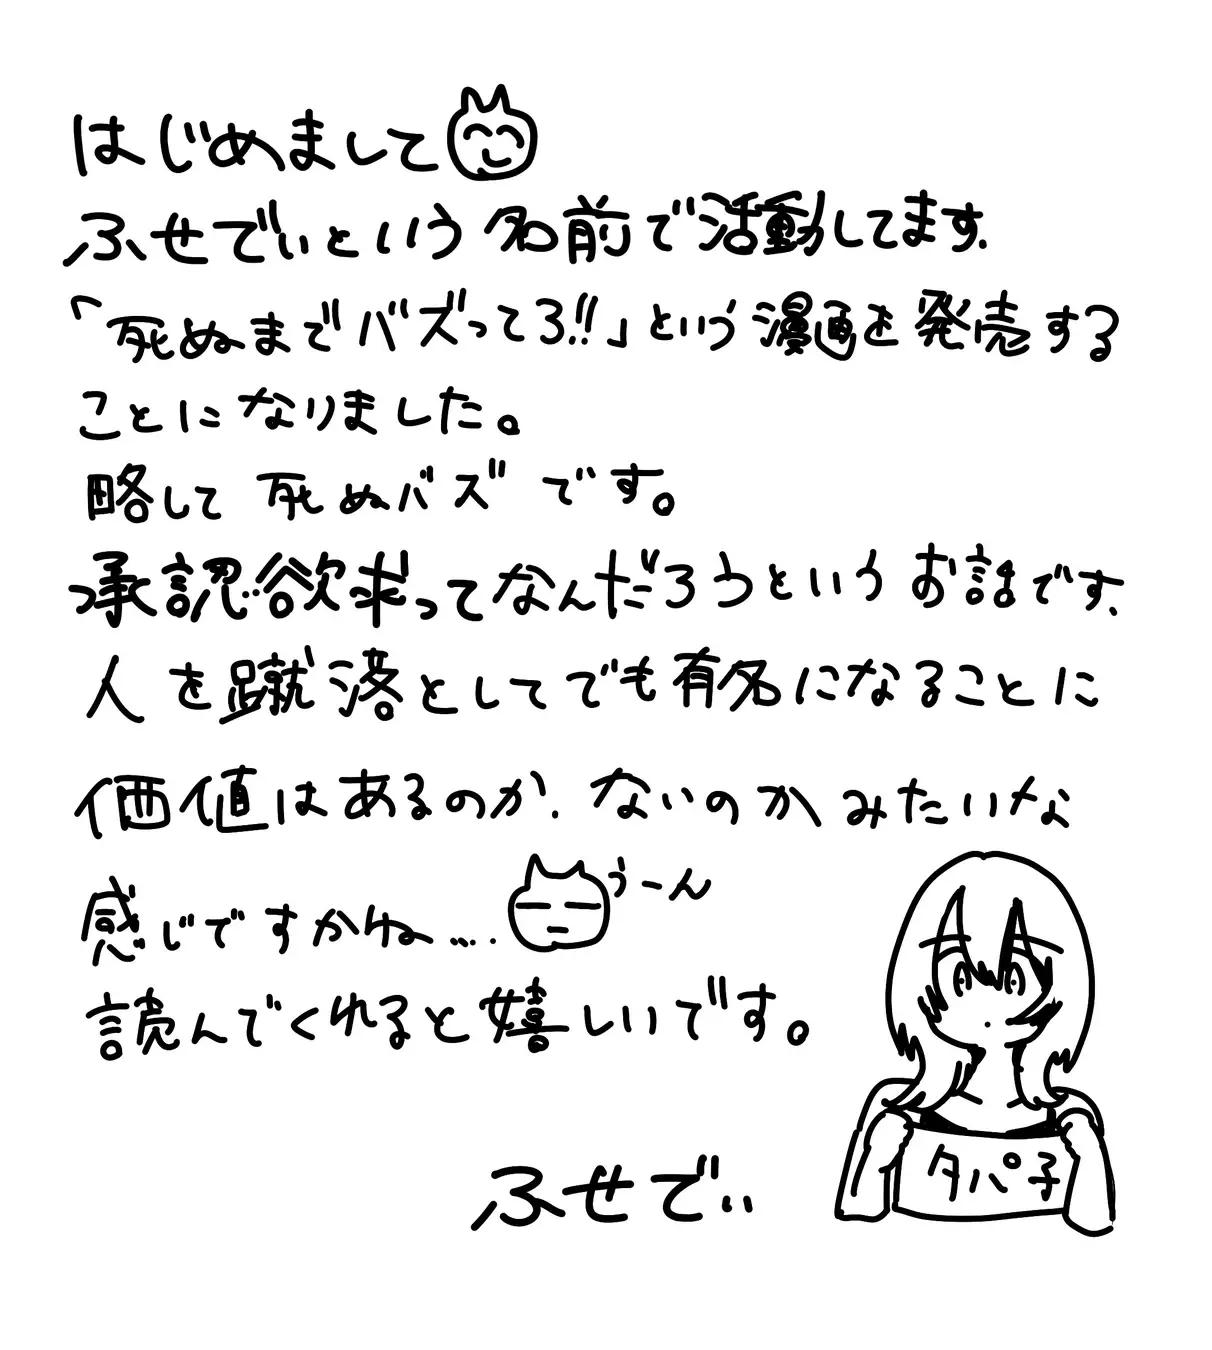 はじめまして
ふせでぃという名前で活動してます.
「死ぬまでバズってろ!!」という漫画を発売する
ことになりました。
略して 死ぬバズ です。
承認欲求ってなんだろうというお話です.
人を蹴落としてでも有名になることに
価値はあるのか.ないのかみたいな
感じですかね....
うーん
読んでくれると嬉しいです。
ふせでぃ
タパ子